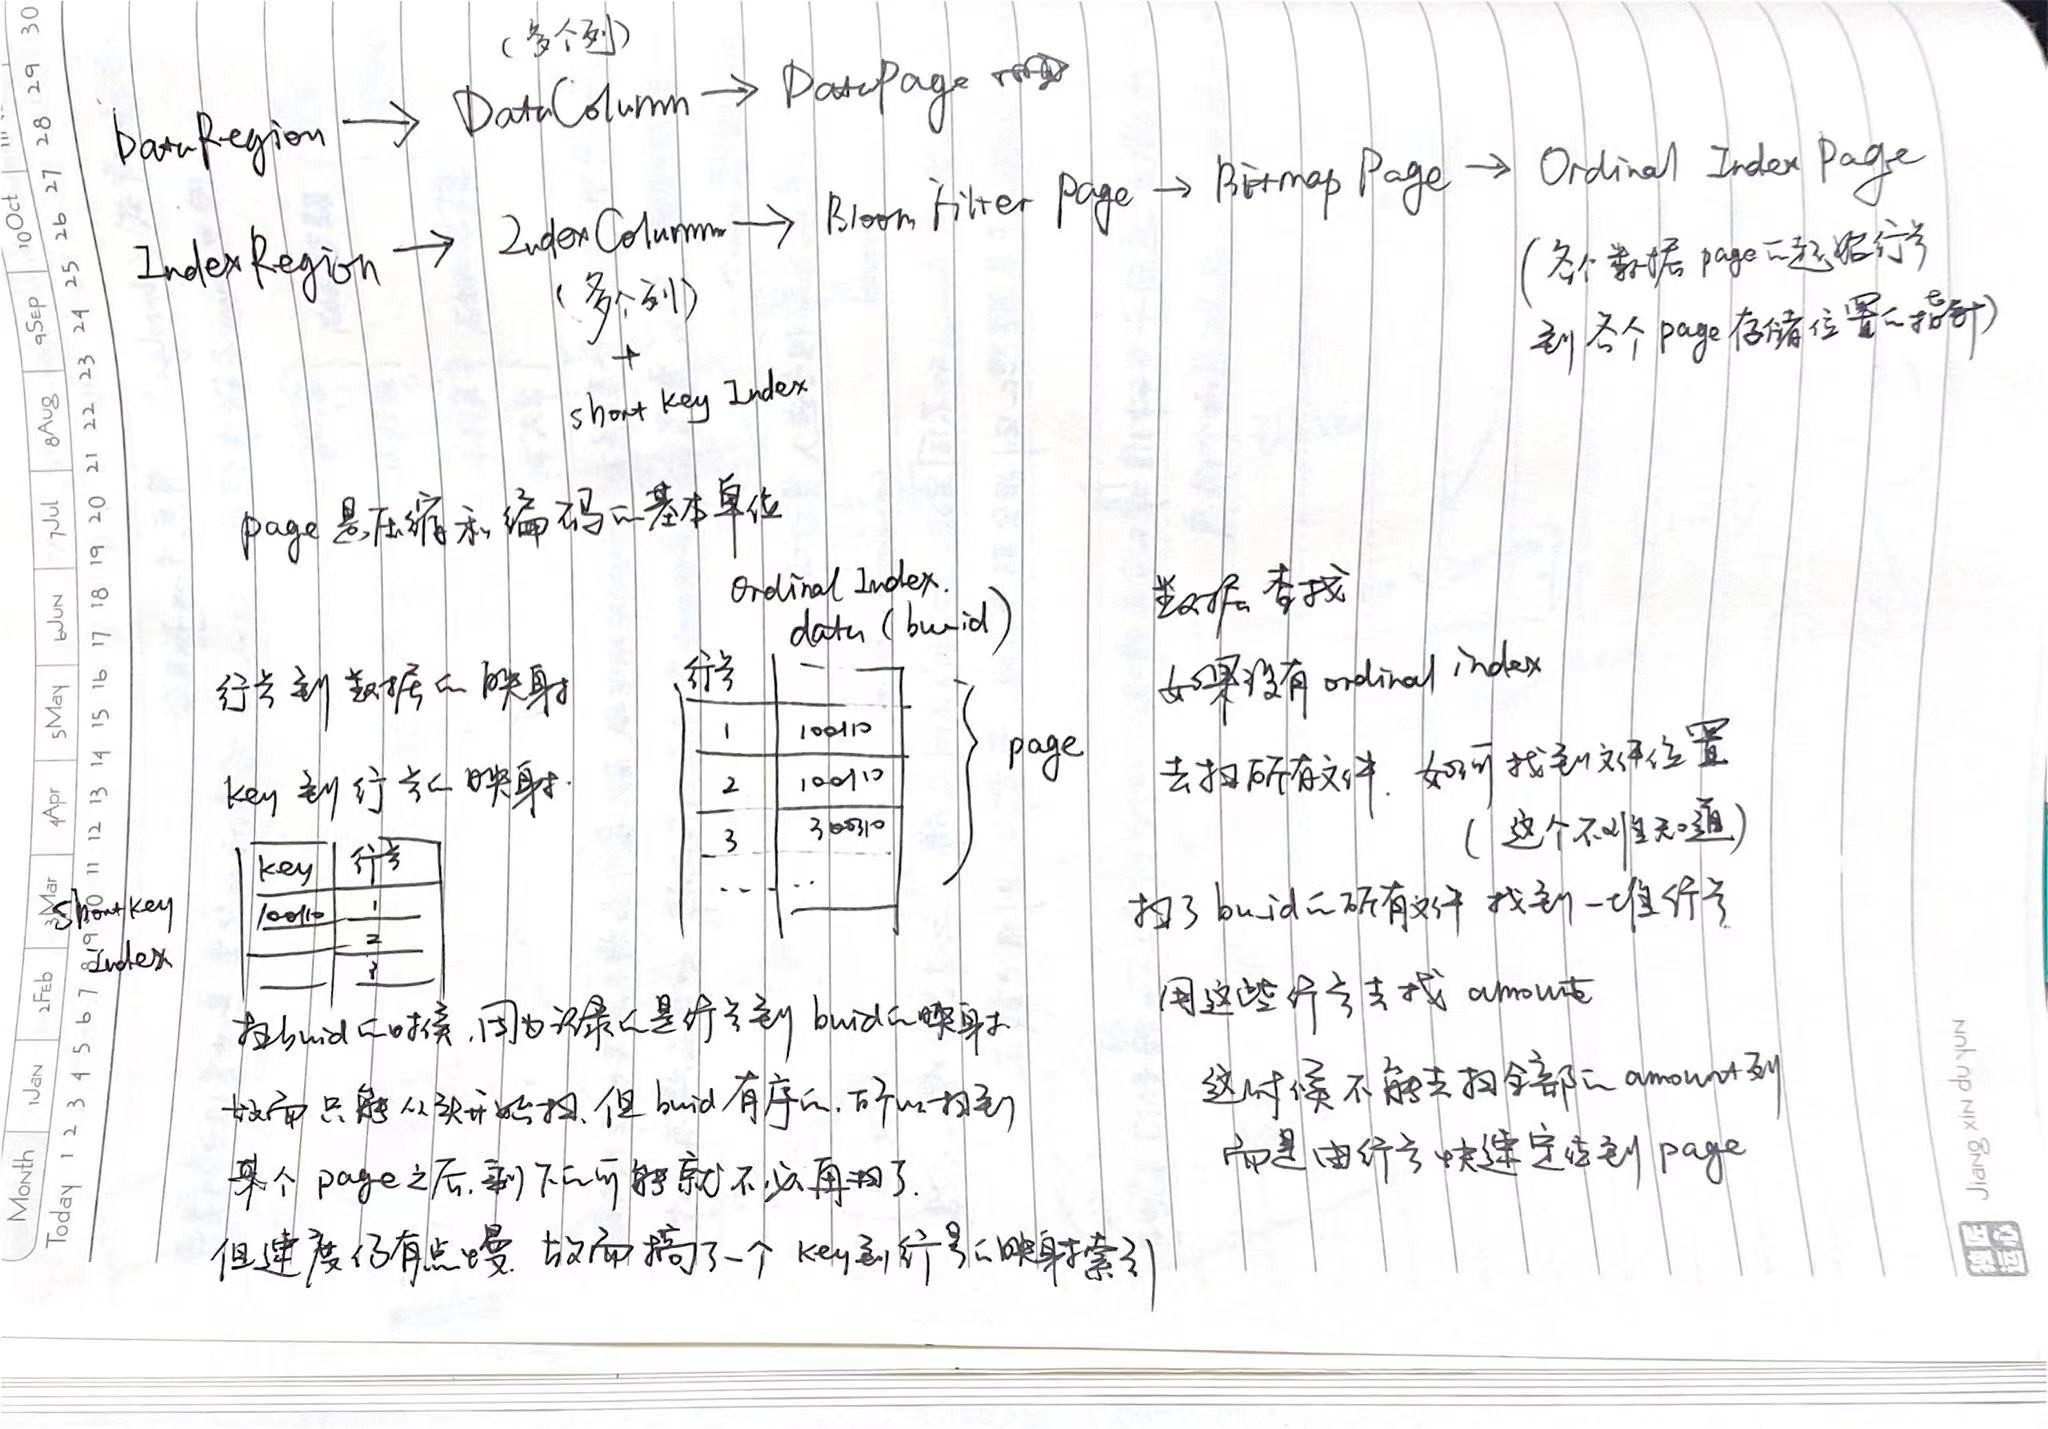 (多个列)
DataRegion → DataColumn → DataPage
IndexRegion → IndexColumn → Bloom Filter Page → Bitmap Page → Ordinal Index Page
(多个列)
+
short key Index
(各个数据page的起始行号
到各个page存储位置的指针)
page是压缩和编码的基本单位
行号到数据的映射
key到行号的映射.
short key
index
key 行号
100110 1
2
3
Ordinal Index.
data (buid)
行号
1 100110
2 100110
3 300310
.... ..
page
扫buid的时候,因为记录的是行号到buid的映射.
故而只能从头开始扫.但buid有序的,所以扫到
某个page之后,剩下的可能就不必再扫了.
但速度仍有点慢 故而搞了一个key到行号的映射索引
数据查找
如果没有ordinal index
去扫所有文件. 如何找到文件位置
(这个不难知道)
扫了buid的所有文件 找到一堆行号
用这些行号去找amount
这时候不能去扫全部的amount列
而是由行号快速定位到page
Month 1Jan 2Feb 3Mar 4Apr 5May 6Jun 7Jul 8Aug 9Sep 10Oct
Today 1 2 3 4 5 6 7 8 9 10 11 12 13 14 15 16 17 18 19 20 21 22 23 24 25 26 27 28 29 30
Jiang xin du yun